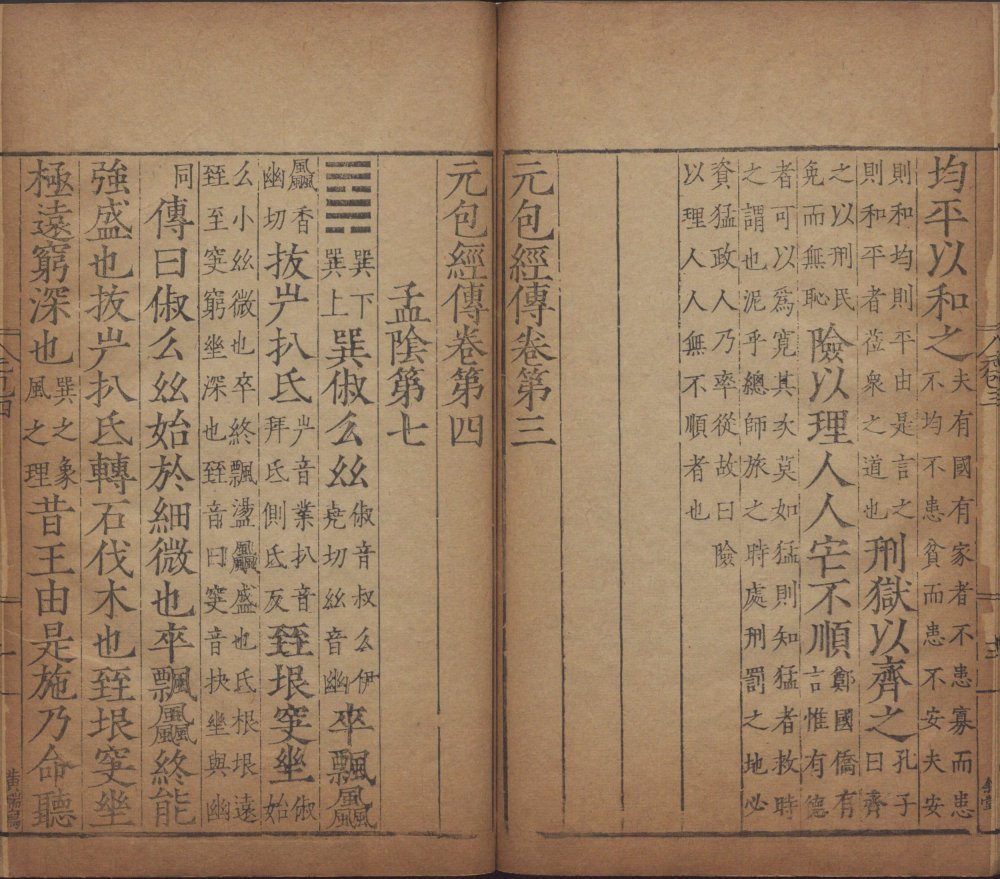 均平以和之夫有國有家者不患寡而患
不均不患貧而患不安夫安
則和均則平由是言之
則和平者莅衆之道也刑獄以齊之孔子
曰齊
之以刑民
免而無恥險以理人人宔不順鄭國僑有
言惟有德
者可以爲寬其次莫如猛則知猛者救時
之謂也泥乎總師旅之時處刑罰之地必
資猛政人乃率從故曰險
以理人人無不順者也
元包經傳卷第三
元包經傳卷第四
孟陰第七
䷸巽下
巽上巽俶幺𢆶俶音叔幺伊
堯切𢆶音幽卒飄飍
飍香
幽切㧞屵扒氐屵音業扒音
拜氐側氐反臸垠窔坐俶
始
幺小𢆶微也卒終飄盪飍盛也氐根垠遠
臸至窔窮坐深也臸音日窔音抉坐與幽
同
傳曰俶幺𢆶始於細微也卒飄飍終能
強盛也㧞屵扒氐轉石伐木也臸垠窔坐
極遠窮深也巽之象
風之理昔王由是施乃命聽